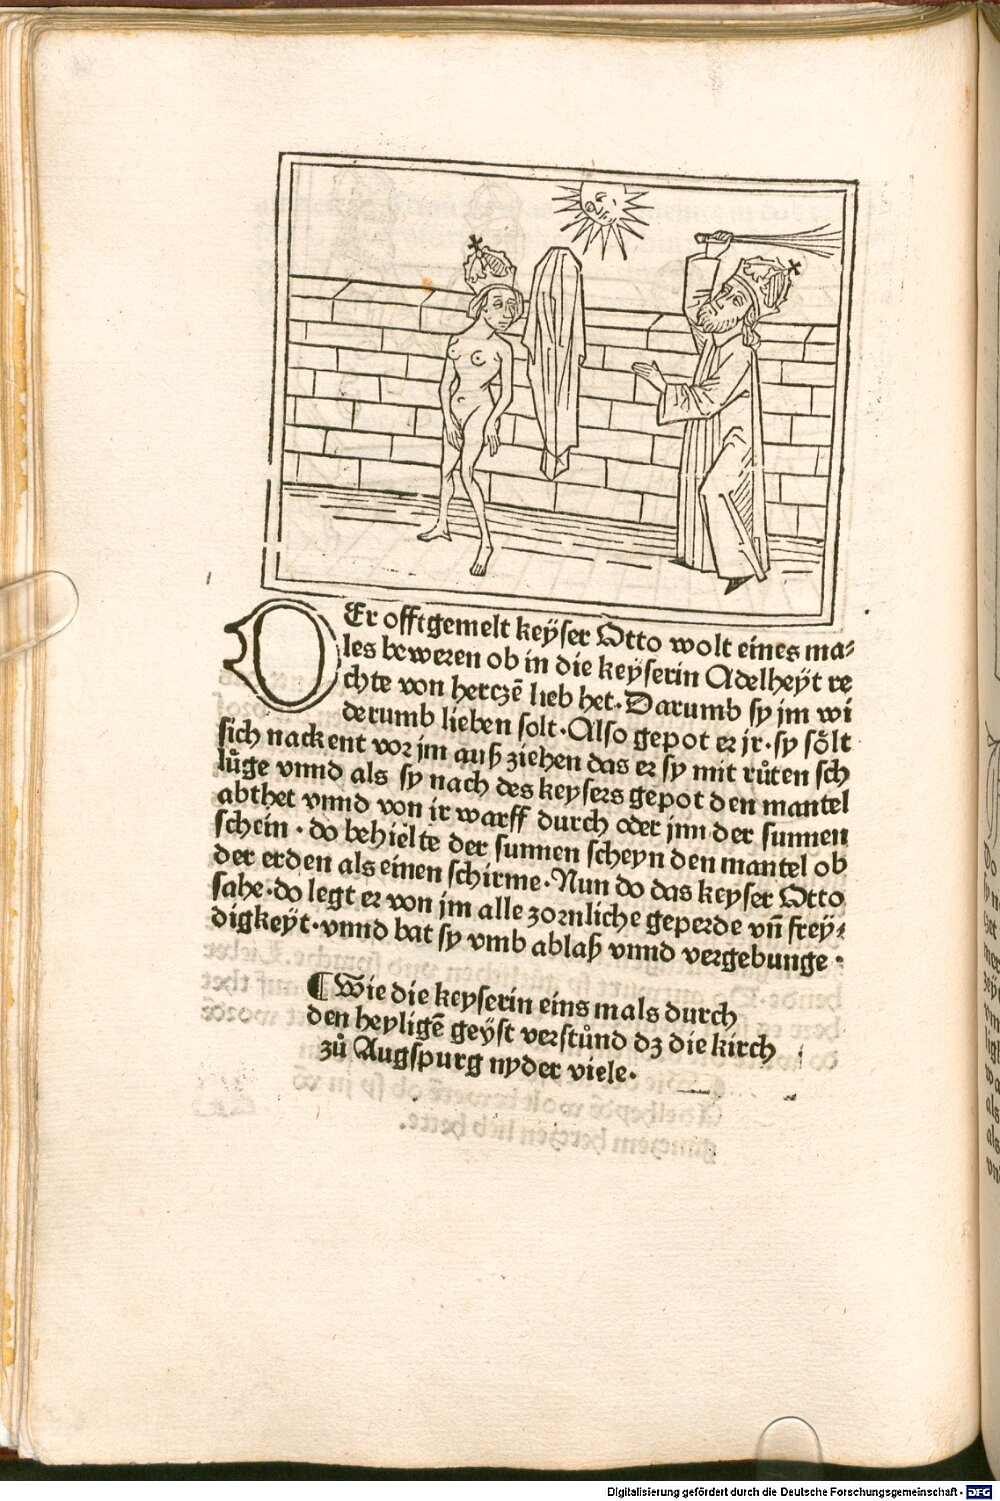 DEr offtgemelt keyser Otto wolt eines ma⸗
les beweren ob in die keyserin Adelheyt re
chte von hertzē lieb het· Darumb sy jm wi
derumb lieben solt· Also gepot er jr· sy soͤlt
sich nackent vor jm auß ziehen das er sy mit ruͦten sch
luͦge vnnd als sy nach des keysers gepot den mantel
abthet vnnd von ir warff durch oder jnn der sunnen
schein · do behielte der sunnen scheyn den mantel ob
der erden als einen schirme· Nun do das keyser Otto
sahe· do legt er von jm alle zornliche geperde vn̄ frey⸗
digkeyt· vnnd bat sy vmb ablaß vnnd vergebunge ·
¶ Wie die keyserin eins mals durch
den heyligē geyst verstuͦnd dz die kirch
zuͦ Augspurg nyder viele·
Digitalisierung gefördert durch die Deutsche Forschungsgemeinschaft - DFG